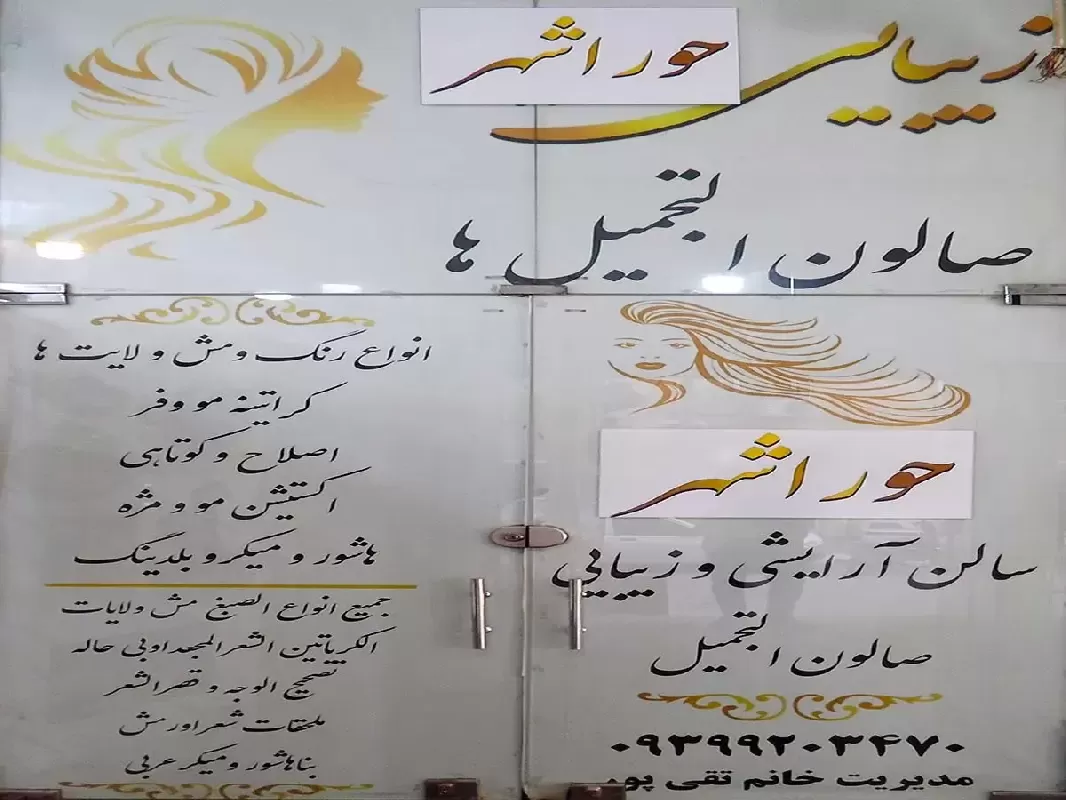 زیبایی
حوراشهر
صالون التجمیل ها
انواع رنگ و مش و لایت ها
کراتینه مو و فر
اصلاح و کوتاهی
اکستنشن مو و مژه
هاشور و میکروبلدینگ
جمیع انواع الصبغ مش ولایات
الکریاتین الشعر المجعد اوبی حاله
تصحیح الوجه و قصر الشعر
ملحقات شعر اورمش
بناهاشور و میکر عربی
حوراشهر
سالن آرایشی و زیبایی
صالون التجمیل
۰۹۳۹۹۲۰۳۴۷۰
مدیریت خانم تقی پور